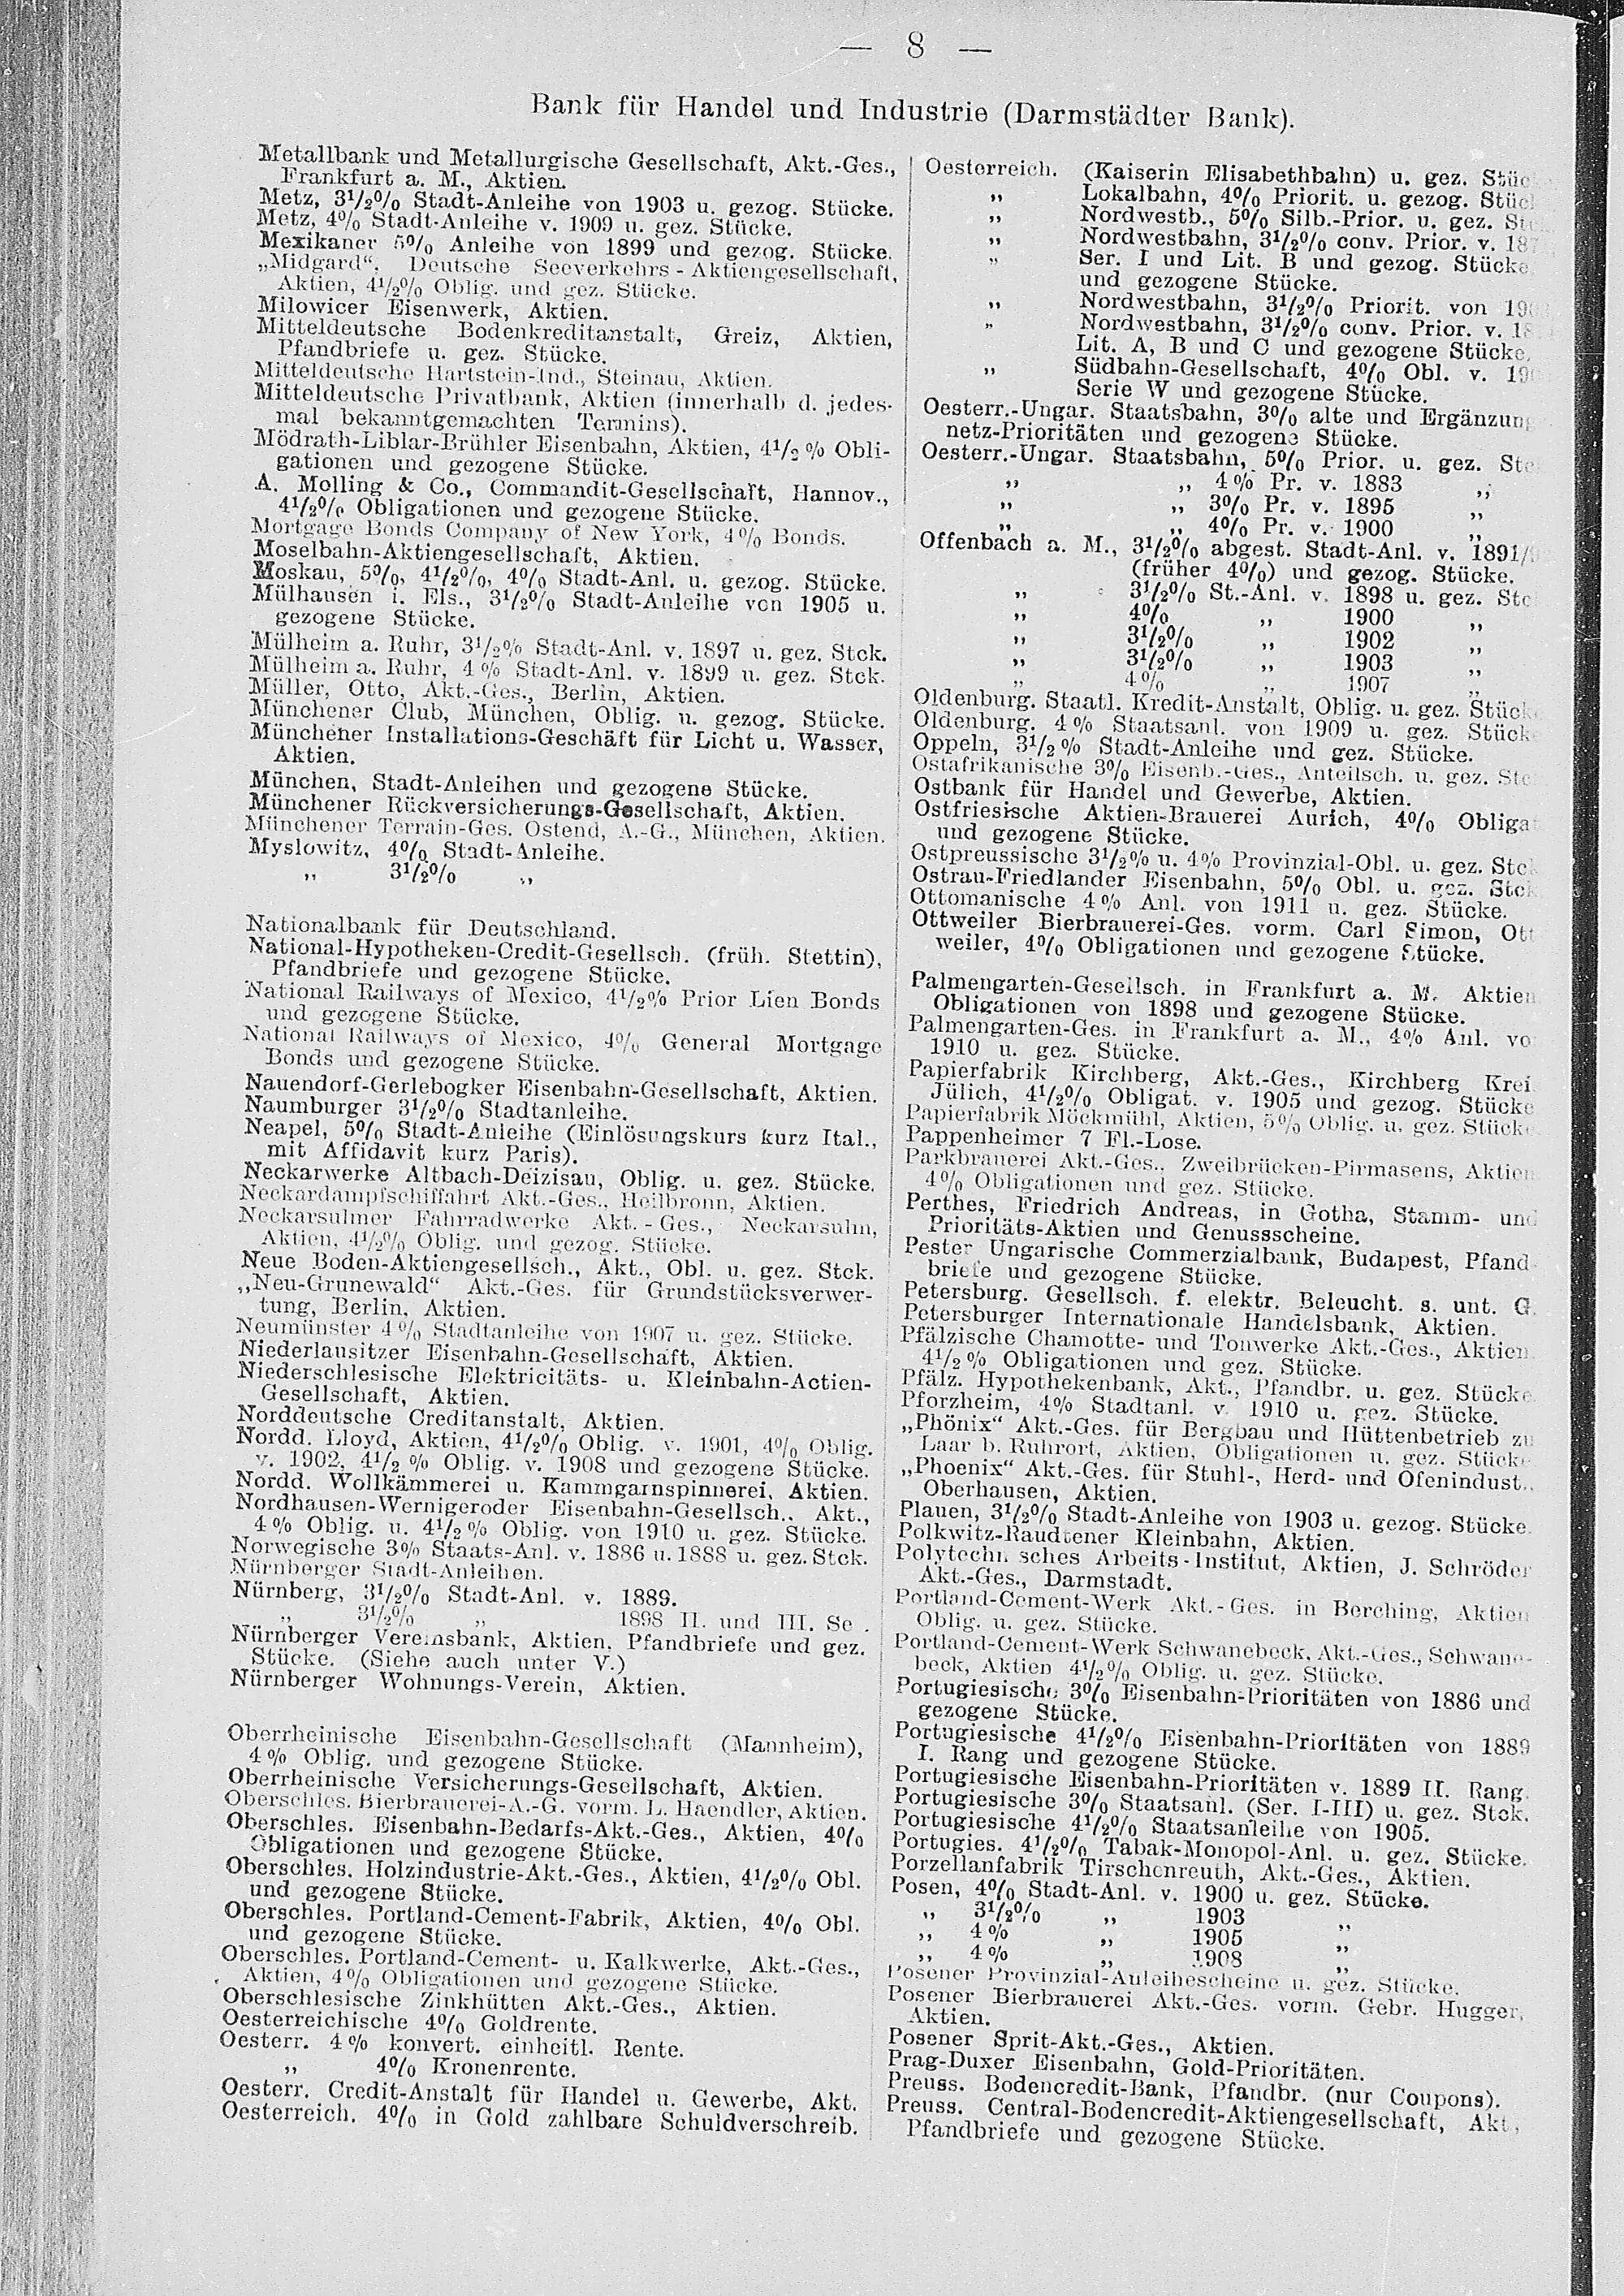 — 8 —
Bank für Handel und Industrie (Darmstädter Bank).
Metallbank und Metallurgische Gesellschaft, Akt.-Ges.,
Frankfurt a. M., Aktien.
Metz, 3½% Stadt-Anleihe von 1903 u. gezog. Stücke.
Metz, 4% Stadt-Anleihe v. 1909 u. gez. Stücke.
Mexikaner 5% Anleihe von 1899 und gezog. Stücke.
„Midgard“, Deutsche Seeverkehrs-Aktiengesellschaft,
Aktien, 4½% Oblig. und gez. Stücke.
Milowicer Eisenwerk, Aktien.
Mitteldeutsche Bodenkreditanstalt, Greiz, Aktien,
Pfandbriefe u. gez. Stücke.
Mitteldeutsche Hartstein-Ind., Steinau, Aktien.
Mitteldeutsche Privatbank, Aktien (innerhalb d. jedes-
mal bekanntgemachten Termins).
Mödrath-Liblar-Brühler Eisenbahn, Aktien, 4½% Obli-
gationen und gezogene Stücke.
A. Molling & Co., Commandit-Gesellschaft, Hannov.,
4½% Obligationen und gezogene Stücke.
Mortgage Bonds Company of New York, 4% Bonds.
Moselbahn-Aktiengesellschaft, Aktien.
Moskau, 5%, 4½%, 4% Stadt-Anl. u. gezog. Stücke.
Mülhausen i. Els., 3½% Stadt-Anleihe von 1905 u.
gezogene Stücke.
Mülheim a. Ruhr, 3½% Stadt-Anl. v. 1897 u. gez. Stck.
Mülheim a. Ruhr, 4% Stadt-Anl. v. 1899 u. gez. Stck.
Müller, Otto, Akt.-Ges., Berlin, Aktien.
Münchener Club, München, Oblig. u. gezog. Stücke.
Münchener Installations-Geschäft für Licht u. Wasser,
Aktien.
München, Stadt-Anleihen und gezogene Stücke.
Münchener Rückversicherungs-Gesellschaft, Aktien.
Münchener Terrain-Ges. Ostend, A.-G., München, Aktien.
Myslowitz, 4% Stadt-Anleihe.
„ 3½% „
Nationalbank für Deutschland.
National-Hypotheken-Credit-Gesellsch. (früh. Stettin),
Pfandbriefe und gezogene Stücke.
National Railways of Mexico, 4½% Prior Lien Bonds
und gezogene Stücke.
National Railways of Mexico, 4% General Mortgage
Bonds und gezogene Stücke.
Nauendorf-Gerlebogker Eisenbahn-Gesellschaft, Aktien.
Naumburger 3½% Stadtanleihe.
Neapel, 5% Stadt-Anleihe (Einlösungskurs kurz Ital.,
mit Affidavit kurz Paris).
Neckarwerke Altbach-Deizisau, Oblig. u. gez. Stücke.
Neckardampfschiffahrt Akt.-Ges., Heilbronn, Aktien.
Neckarsulmer Fahrradwerke Akt.-Ges., Neckarsulm,
Aktien, 4½% Oblig. und gezog. Stücke.
Neue Boden-Aktiengesellsch., Akt., Obl. u. gez. Stck.
„Neu-Grunewald“ Akt.-Ges. für Grundstücksverwer-
tung, Berlin, Aktien.
Neumünster 4% Stadtanleihe von 1907 u. gez. Stücke.
Niederlausitzer Eisenbahn-Gesellschaft, Aktien.
Niederschlesische Elektricitäts- u. Kleinbahn-Actien-
Gesellschaft, Aktien.
Norddeutsche Creditanstalt, Aktien.
Nordd. Lloyd, Aktien, 4½% Oblig. v. 1901, 4% Oblig.
v. 1902, 4½% Oblig. v. 1908 und gezogene Stücke.
Nordd. Wollkämmerei u. Kammgarnspinnerei, Aktien.
Nordhausen-Wernigeroder Eisenbahn-Gesellsch., Akt.,
4% Oblig. u. 4½% Oblig. von 1910 u. gez. Stücke.
Norwegische 3% Staats-Anl. v. 1886 u. 1888 u. gez. Stck.
Nürnberger Stadt-Anleihen.
Nürnberg, 3½% Stadt-Anl. v. 1889.
„ 3½% „ 1898 II. und III. Se .
Nürnberger Vereinsbank, Aktien, Pfandbriefe und gez.
Stücke. (Siehe auch unter V.)
Nürnberger Wohnungs-Verein, Aktien.
Oberrheinische Eisenbahn-Gesellschaft (Mannheim),
4% Oblig. und gezogene Stücke.
Oberrheinische Versicherungs-Gesellschaft, Aktien.
Oberschles. Bierbrauerei-A.-G. vorm. L. Haendler, Aktien.
Oberschles. Eisenbahn-Bedarfs-Akt.-Ges., Aktien, 4%
Obligationen und gezogene Stücke.
Oberschles. Holzindustrie-Akt.-Ges., Aktien, 4½% Obl.
und gezogene Stücke.
Oberschles. Portland-Cement-Fabrik, Aktien, 4% Obl.
und gezogene Stücke.
Oberschles. Portland-Cement- u. Kalkwerke, Akt.-Ges.,
Aktien, 4% Obligationen und gezogene Stücke.
Oberschlesische Zinkhütten Akt.-Ges., Aktien.
Oesterreichische 4% Goldrente.
Oesterr. 4% konvert. einheitl. Rente.
„ 4% Kronenrente.
Oesterr. Credit-Anstalt für Handel u. Gewerbe, Akt.
Oesterreich. 4% in Gold zahlbare Schuldverschreib.
Oesterreich. (Kaiserin Elisabethbahn) u. gez. Stüc
„ Lokalbahn, 4% Priorit. u. gezog. Stüc
„ Nordwestb., 5% Silb.-Prior. u. gez. St
„ Nordwestbahn, 3½% conv. Prior. v. 187
„ Ser. I und Lit. B und gezog. Stücke
und gezogene Stücke.
„ Nordwestbahn, 3½% Priorit. von 190
„ Nordwestbahn, 3½% conv. Prior. v. 18
Lit. A, B und C und gezogene Stücke.
„ Südbahn-Gesellschaft, 4% Obl. v. 190
Serie W und gezogene Stücke.
Oesterr.-Ungar. Staatsbahn, 3% alte und Ergänzung
netz-Prioritäten und gezogene Stücke.
Oesterr.-Ungar. Staatsbahn, 5% Prior. u. gez. Stc
„ „ 4% Pr. v. 1883 „
„ „ 3% Pr. v. 1895 „
„ „ 4% Pr. v. 1900 „
Offenbach a. M., 3½% abgest. Stadt-Anl. v. 1891/
(früher 4%) und gezog. Stücke.
„ 3½% St.-Anl. v. 1898 u. gez. Stc
„ 4% „ 1900 „
„ 3½% „ 1902 „
„ 3½% „ 1903 „
„ 4% „ 1907 „
Oldenburg. Staatl. Kredit-Anstalt, Oblig. u. gez. Stück
Oldenburg. 4% Staatsanl. von 1909 u. gez. Stück
Oppeln, 3½% Stadt-Anleihe und gez. Stücke.
Ostafrikanische 3% Eisenb.-Ges., Anteilsch. u. gez. Stc
Ostbank für Handel und Gewerbe, Aktien.
Ostfriesische Aktien-Brauerei Aurich, 4% Obliga
und gezogene Stücke.
Ostpreussische 3½% u. 4% Provinzial-Obl. u. gez. Stck
Ostrau-Friedlander Eisenbahn, 5% Obl. u. gez. Stck
Ottomanische 4% Anl. von 1911 u. gez. Stücke.
Ottweiler Bierbrauerei-Ges. vorm. Carl Simon, Ott
weiler, 4% Obligationen und gezogene Stücke.
Palmengarten-Gesellsch. in Frankfurt a. M. Aktien
Obligationen von 1898 und gezogene Stücke.
Palmengarten-Ges. in Frankfurt a. M., 4% Anl. vo
1910 u. gez. Stücke.
Papierfabrik Kirchberg, Akt.-Ges., Kirchberg Krei
Jülich, 4½% Obligat. v. 1905 und gezog. Stücke
Papierfabrik Möckmühl, Aktien, 5% Oblig. u. gez. Stücke
Pappenheimer 7 Fl.-Lose.
Parkbrauerei Akt.-Ges., Zweibrücken-Pirmasens, Aktien
4% Obligationen und gez. Stücke.
Perthes, Friedrich Andreas, in Gotha, Stamm- und
Prioritäts-Aktien und Genussscheine.
Pester Ungarische Commerzialbank, Budapest, Pfand-
briefe und gezogene Stücke.
Petersburg. Gesellsch. f. elektr. Beleucht. s. unt. G.
Petersburger Internationale Handelsbank, Aktien.
Pfälzische Chamotte- und Tonwerke Akt.-Ges., Aktien
4½% Obligationen und gez. Stücke.
Pfälz. Hypothekenbank, Akt., Pfandbr. u. gez. Stücke
Pforzheim, 4% Stadtanl. v. 1910 u. gez. Stücke.
„Phönix“ Akt.-Ges. für Bergbau und Hüttenbetrieb zu
Laar b. Ruhrort, Aktien, Obligationen u. gez. Stücke
„Phoenix“ Akt.-Ges. für Stuhl-, Herd- und Ofenindust.,
Oberhausen, Aktien.
Plauen, 3½% Stadt-Anleihe von 1903 u. gezog. Stücke.
Polkwitz-Raudtener Kleinbahn, Aktien.
Polytechn sches Arbeits-Institut, Aktien, J. Schröder
Akt.-Ges., Darmstadt.
Portland-Cement-Werk Akt.-Ges. in Berching, Aktien
Oblig. u. gez. Stücke.
Portland-Cement-Werk Schwanebeck, Akt.-Ges., Schwane-
beck, Aktien 4½% Oblig. u. gez. Stücke.
Portugiesische 3% Eisenbahn-Prioritäten von 1886 und
gezogene Stücke.
Portugiesische 4½% Eisenbahn-Prioritäten von 1889
I. Rang und gezogene Stücke.
Portugiesische Eisenbahn-Prioritäten v. 1889 II. Rang.
Portugiesische 3% Staatsanl. (Ser. I-III) u. gez. Stck.
Portugiesische 4½% Staatsanleihe von 1905.
Portugies. 4½% Tabak-Monopol-Anl. u. gez. Stücke.
Porzellanfabrik Tirschenreuth, Akt.-Ges., Aktien.
Posen, 4% Stadt-Anl. v. 1900 u. gez. Stücke.
„ 3½% „ 1903 „
„ 4% „ 1905 „
„ 4% „ 1908 „
Posener Provinzial-Anleihescheine u. gez. Stücke.
Posener Bierbrauerei Akt.-Ges. vorm. Gebr. Hugger,
Aktien.
Posener Sprit-Akt.-Ges., Aktien.
Prag-Duxer Eisenbahn, Gold-Prioritäten.
Preuss. Bodencredit-Bank, Pfandbr. (nur Coupons).
Preuss. Central-Bodencredit-Aktiengesellschaft, Akt.,
Pfandbriefe und gezogene Stücke.